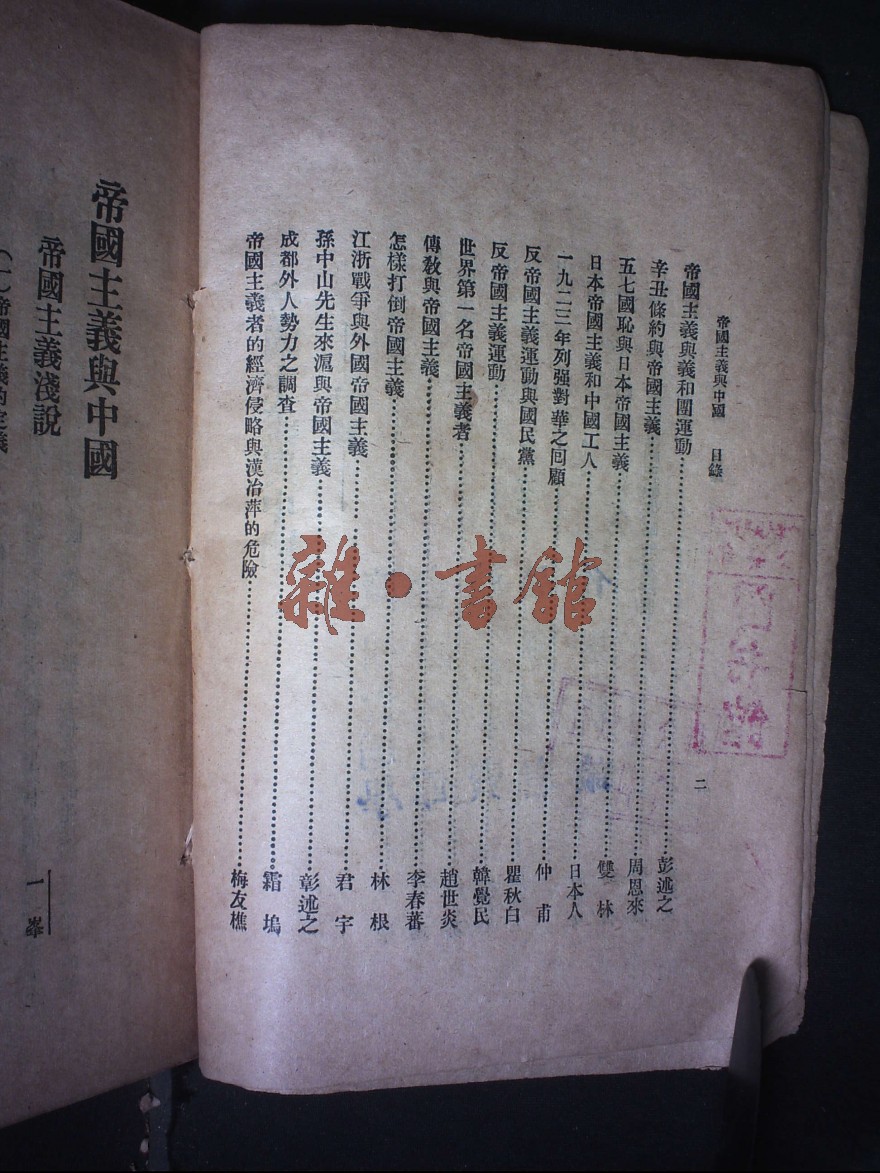 帝國主義與中國 目錄 二
帝國主義與義和團運動……彭述之
辛丑條約與帝國主義……周恩來
五七國恥與日本帝國主義……雙林
日本帝國主義和中國工人……日本人
一九二三年列强對華之回顧……仲甫
反帝國主義運動與國民黨……瞿秋白
反帝國主義運動……韓覺民
世界第一名帝國主義者……趙世炎
傳敎與帝國主義……李春蕃
怎樣打倒帝國主義……林根
江浙戰爭與外國帝國主義……君宇
孫中山先生來滬與帝國主義……彰述之
成都外人勢力之調查……霜塢
帝國主義者的經濟侵略與漢冶萍的危險……梅友樵
帝國主義與中國
帝國主義淺說 一峯
(一)帝國主義的定義
雜·書館